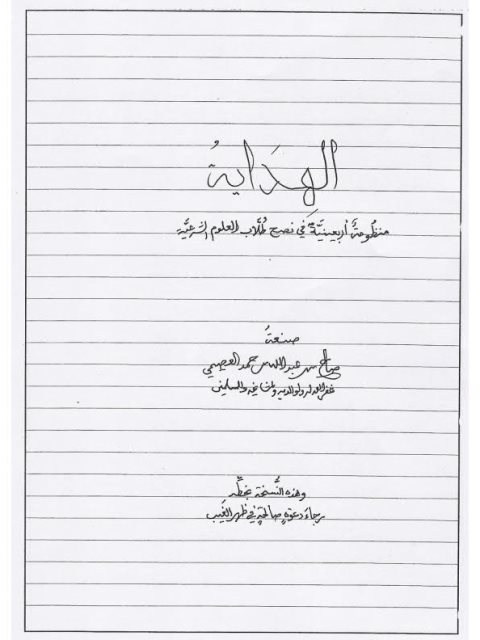 الهدايةُ
منظُومةٌ أربعينيَّةٌ في نصح طُلَّاب العلوم الشَّرعيَّة
صنعةُ
صالح بن عبدالله بن حمد العصيمي
غفر الله له ولوالديه ولمشايخه وللمسلمين
وهذه النُّسخة بخطِّه
رجاءَ دعوةٍ صالحةٍ في ظهر الغَيب